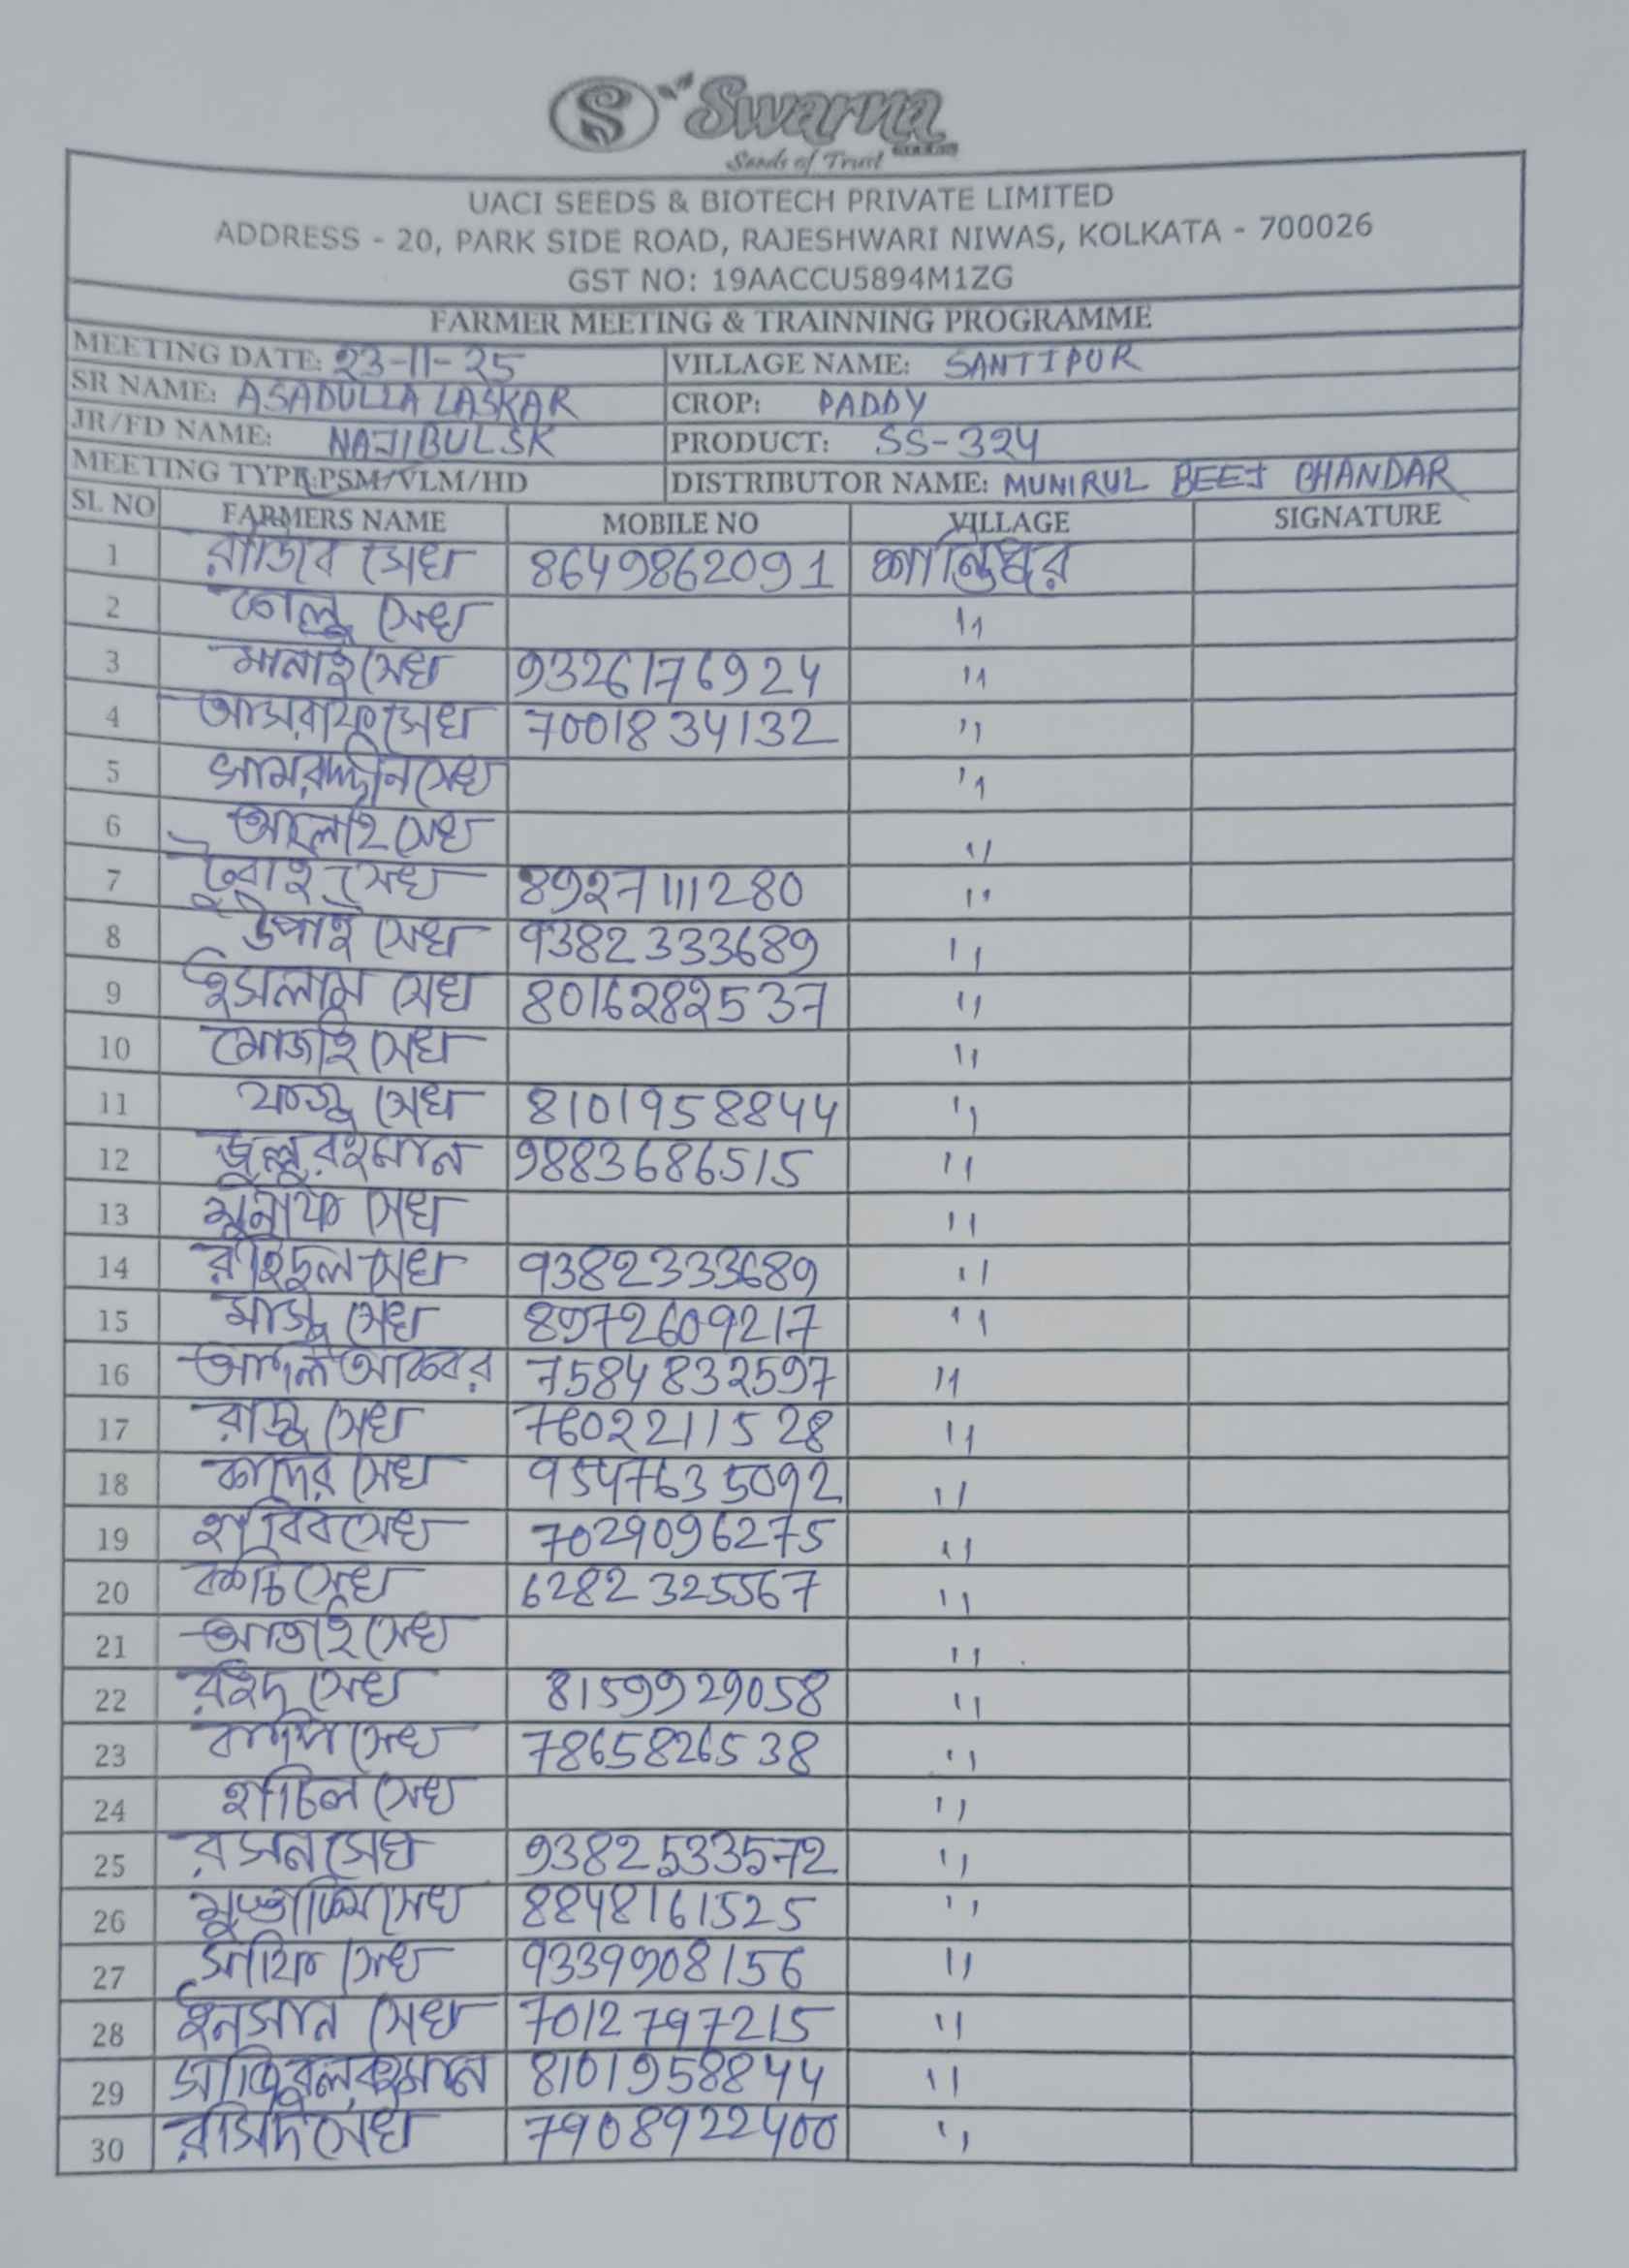 Swarna
Seeds of Trust
UACI SEEDS & BIOTECH PRIVATE LIMITED
ADDRESS - 20, PARK SIDE ROAD, RAJESHWARI NIWAS, KOLKATA - 700026
GST NO: 19AACCU5894M1ZG
FARMER MEETING & TRAINNING PROGRAMME
MEETING DATE: 23-11-25 VILLAGE NAME: SANTIPUR
SR NAME: ASADULLA LASKAR CROP: PADDY
JR/FD NAME: NAJIBUL SK PRODUCT: SS-324
MEETING TYPE:PSM/VLM/HD DISTRIBUTOR NAME: MUNIRUL BEEJ BHANDAR
SL NO FARMERS NAME MOBILE NO VILLAGE SIGNATURE
1 রাজিব সেখ 8649862091 শান্তিপুর
2 সেখ "
3 সেখ 9326176924 "
4 আসরাফ সেখ 7001834132 "
5 সেখ "
6 সেখ "
7 সেখ 8927111280 "
8 সেখ 9382333689 "
9 ইসলাম সেখ 8016282537 "
10 সেখ "
11 সেখ 8101958844 "
12 9883686515 "
13 সেখ "
14 সেখ 9382333689 "
15 সেখ 8972609217 "
16 7584832597 "
17 রাজু সেখ 7602211528 "
18 কাদের সেখ 9547635092 "
19 হাবিব সেখ 7029096275 "
20 সেখ 6282325567 "
21 সেখ "
22 সেখ 8159929058 "
23 সেখ 7865826538 "
24 সেখ "
25 সেখ 9382533572 "
26 সেখ 8848161525 "
27 সেখ 9339908156 "
28 ইনসান সেখ 7012797215 "
29 8101958844 "
30 রসিদ সেখ 7908922400 "